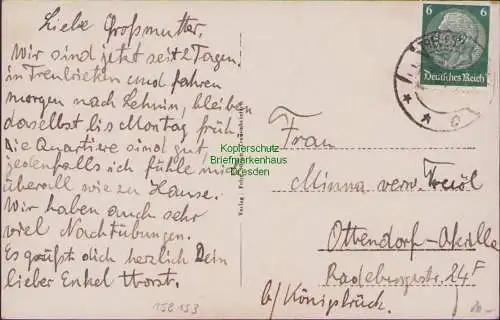 Liebe Großmutter.
Wir sind jetzt seit 2 Tagen
in Treubrietzen und fahren
morgen nach Lehnin, bleiben
daselbst bis Montag früh.
Die Quartiere sind gut
jedenfalls ich fühle mich
überall wie zu Hause.
Wir haben auch sehr
viel Nachtübungen.
Es grüßt dich herzlich Dein
lieber Enkel Horst.
158 153
6 6
Deutsches Reich
Kopierschutz
Briefmarkenhaus
Dresden
Frau
Minna verw.
Ottendorf-Okrilla
Radebergerstr. 24F
b/Königsbrück.